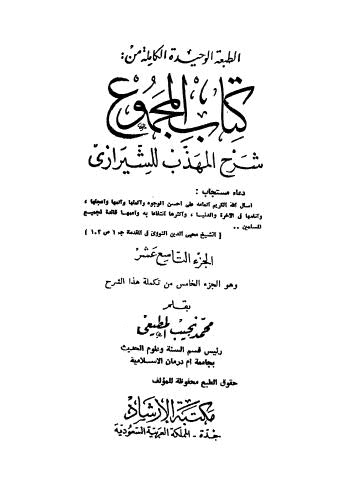 الطبعة الوحيدة الكاملة من:
كتاب المجموع
شرح المهذب للشيرازى
دعاء مستجاب :
أسأل الله الكريم اتمامه على احسن الوجوه واكملها واتمها واعجلها ،
وانفعها فى الآخرة والدنيا ، واكثرها انتفاعا به واعمها فائدة لجميع
المسلمين ..
[ الشيخ محيى الدين النووى فى المقدمة جـ ١ ص ١٠٢ ]
الجزء التاسع عشر
وهو الجزء الخامس من تكملة هذا الشرح
بقلم
محمد نجيب المطيعى
رئيس قسم السنة وعلوم الحديث
بجامعة أم درمان الاسلامية
حقوق الطبع محفوظة للمؤلف
مكتبة الإرشاد
جدة - المملكة العربية السعودية